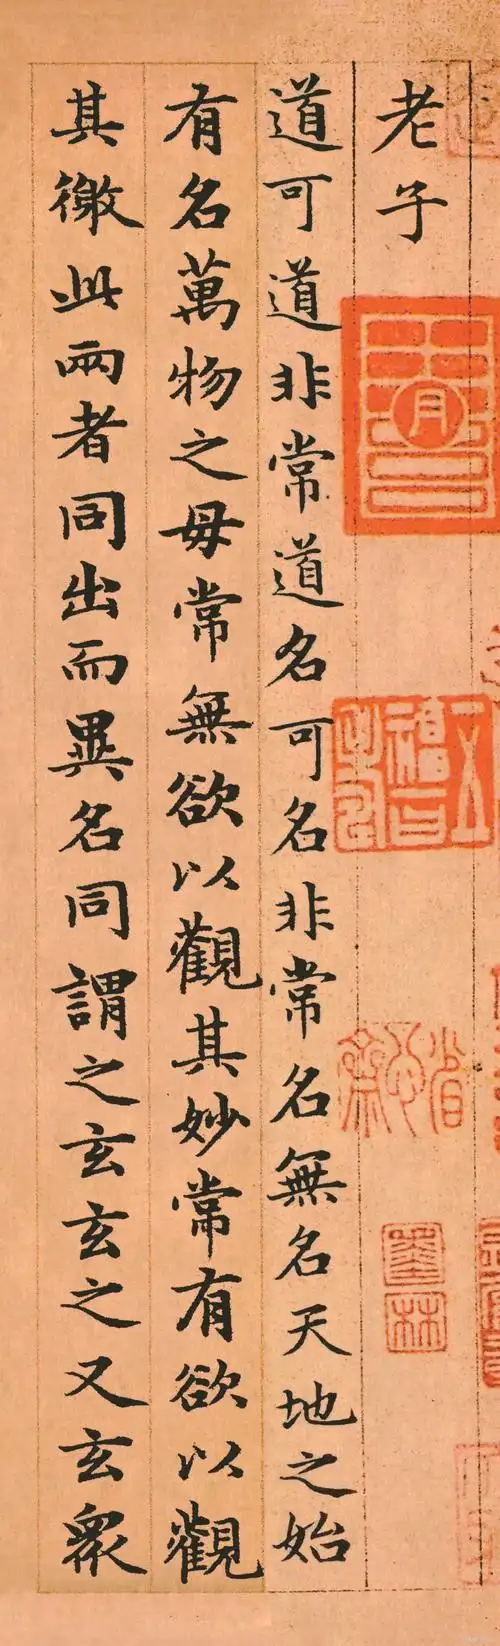 老子
道可道非常道名可名非常名無名天地之始
有名萬物之母常無欲以觀其妙常有欲以觀
其徼此兩者同出而異名同謂之玄玄之又玄衆
墨林